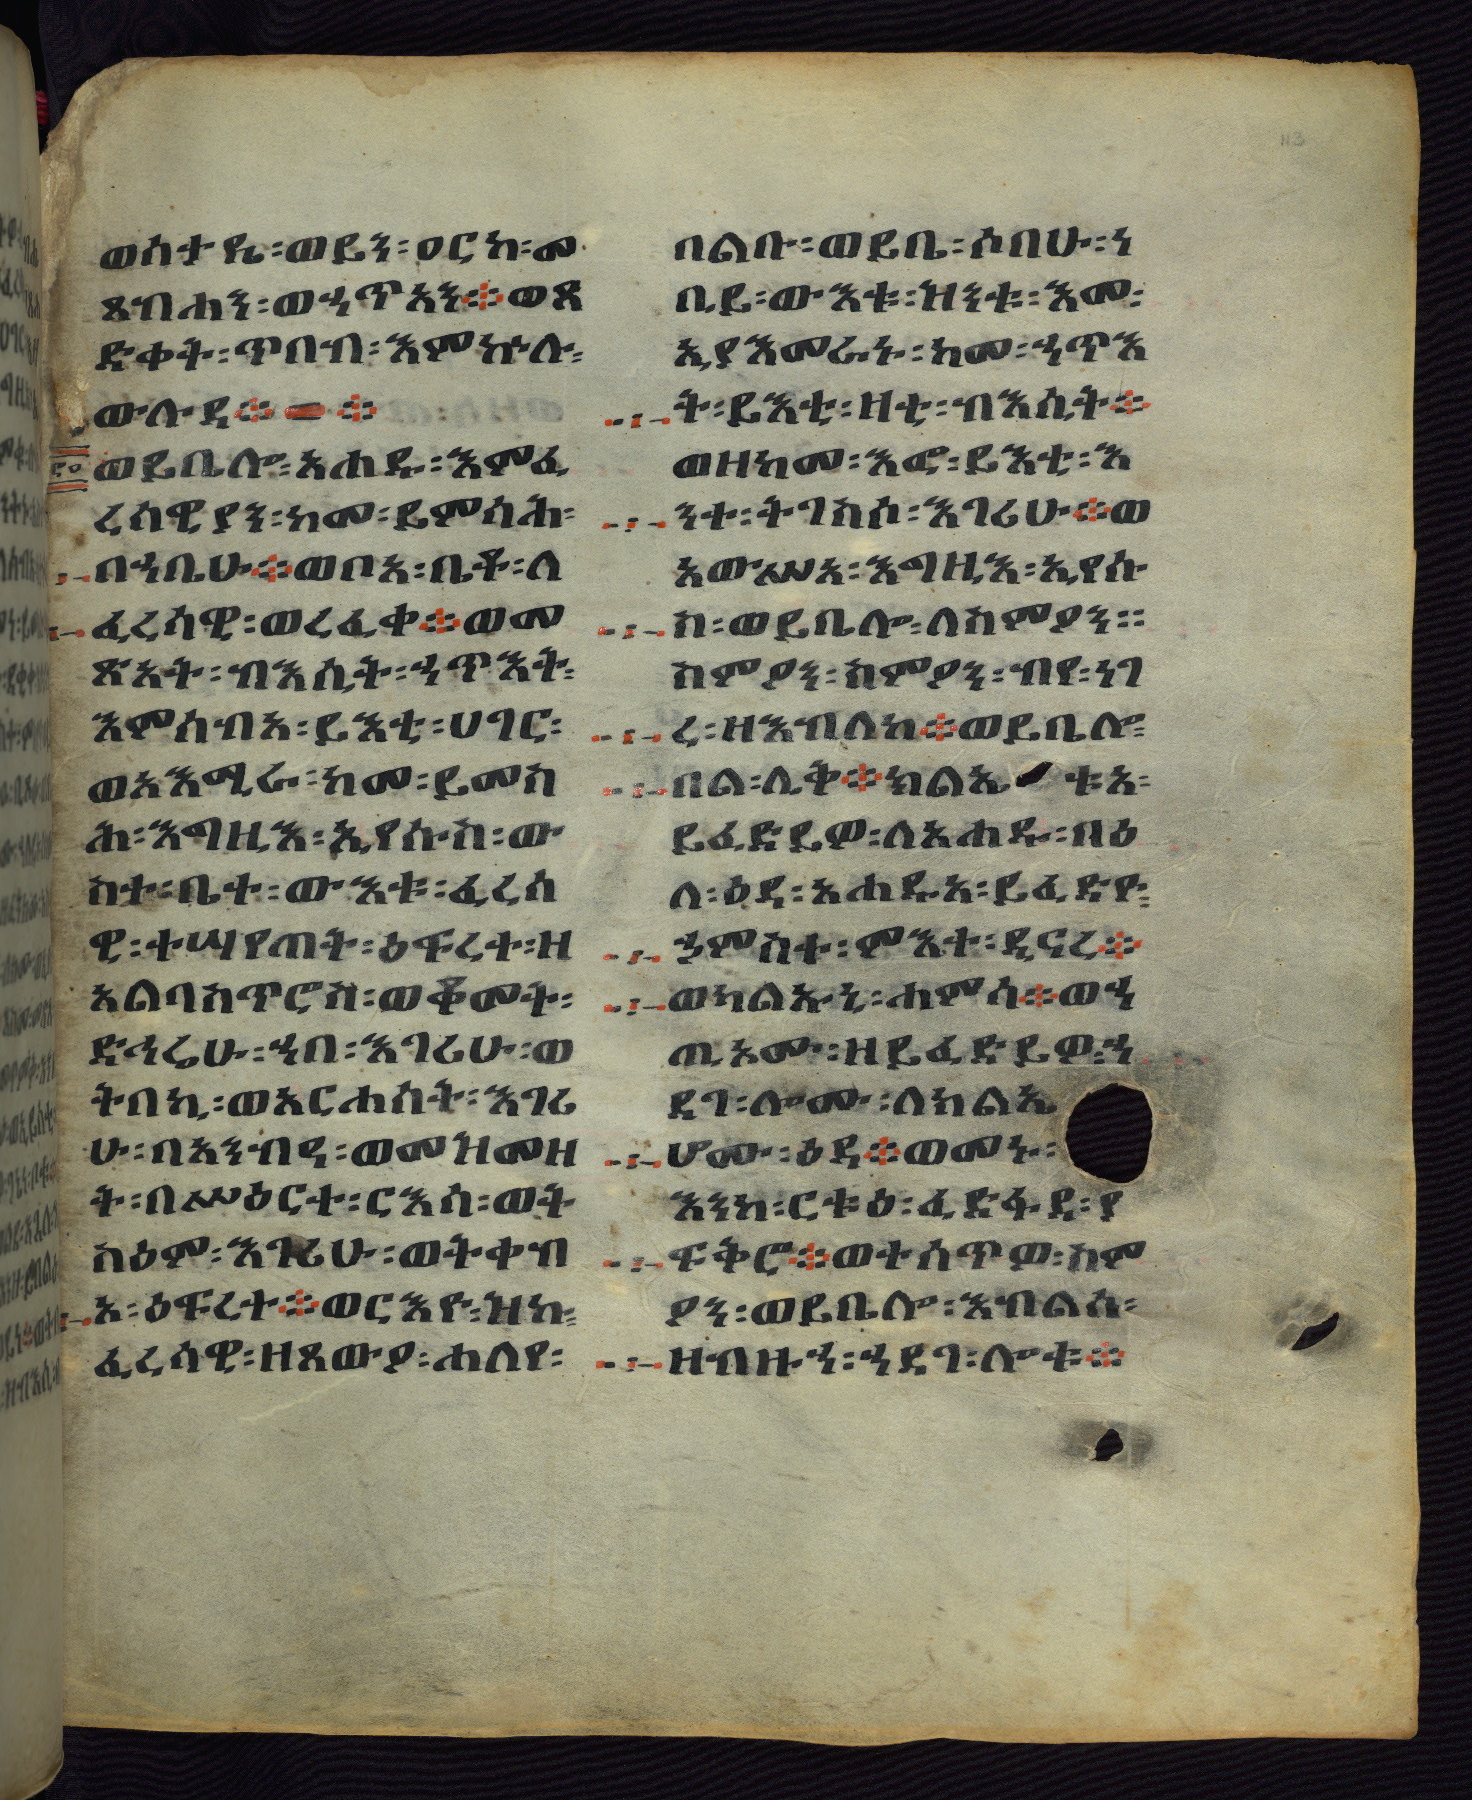 ወሰታዪ፡ወይን፡ዐርክ፡መ
ጸብሐን፡ወኃጥአን፨ወጸ
ድቀት፡ጥበብ፡እምኵሉ፡
ውሉዳ፨ ፨
ወይቤሎ፡አሐዱ፡እምፈ
ረሳዊያን፡ከመ፡ይምሳሕ፡
በኀቤሁ፨ወቦአ፡ቤቶ፡ለ
ፈረሳዊ፡ወረፈቀ፨ወመ
ጽአት፡ብእሲት፡ኃጥእት፡
እምሰብአ፡ይእቲ፡ሀገር፡
ወአእሚራ፡ከመ፡ይመስ
ሕ፡እግዚእ፡ኢየሱስ፡ው
ስተ፡ቤተ፡ውእቱ፡ፈረሳ
ዊ፡ተሣየጠት፡ዕፍረተ፡ዘ
አልባስጥሮስ፡ወቆመት፡
ድኅሬሁ፡ኀበ፡እገሪሁ፡ወ
ትበኪ፡ወአርሐሰት፡እገሪ
ሁ፡በአንብዓ፡ወመዝመዘ
ት፡በሥዕርተ፡ርእሳ፡ወት
ስዕም፡እገሪሁ፡ወትቀብ
አ፡ዕፍረተ፨ወርእዮ፡ዝኩ፡
ፈረሳዊ፡ዘጸውዖ፡ሐለየ፡
በልቡ፡ወይቤ፡ሶበሁ፡ነ
ቢይ፡ውእቱ፡ዝንቱ፡እመ፡
ኢያእመራኑ፡ከመ፡ኃጥእ
ት፡ይእቲ፡ዛቲ፡ብእሲት፨
ወዘከመ፡እፎ፡ይእቲ፡እ
ንተ፡ትገስሶ፡እገሪሁ፨ወ
አውሥአ፡እግዚእ፡ኢየሱ
ስ፡ወይቤሎ፡ለስምዖን፡፡
ስምዖን፡ስምዖን፡ብየ፡ነገ
ረ፡ዘእብለከ፨ወይቤሎ፡
በል፡ሊቅ፨ክልኤ ቱ፡እ፡
ይፈድይዎ፡ለአሐዱ፡በዕ
ለ፡ዕዳ፡አሐዱእ፡ይፈድዮ፡
ኃምስተ፡ምእተ፡ዲናረ፨
ወካልኡኒ፡ሐምሳ፨ወኃ
ጢኦሙ፡ዘይፈድይዎ፡ኃ
ደገ፡ሎሙ፡ለክልኤ
ሆሙ፡ዕዳ፨ወመኑ፡
እንከ፡ርቱዕ፡ፈድፋደ፡ያ
ፍቅሮ፨ወተሰጥዎ፡ስም
ዖን፡ወይቤሎ፡እብልሰ፡
ዘብዙኅ፡ኃደገ፡ሎቱ፨
113